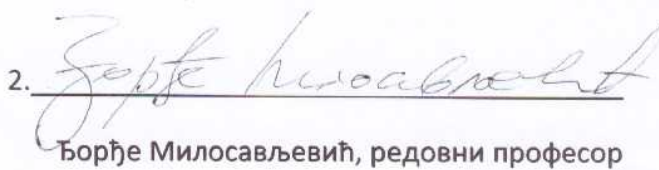 2. Ђорђе Милосављевић
Ђорђе Милосављевић, редовни професор